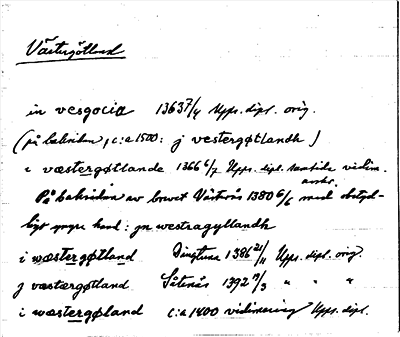 Västergötland
in vesgocia 1363 7/4 Upps. dipl. orig.
(på baksidan, c:a 1500: j vestergøtlandh)
i væstergøtlande 1366 6/7 Upps. dipl. samtida vidim.
På baksidan av brevet Västerås 1380 6/6 med obetyd-
ligt yngre hand: jn westragyllandh
i wæstergøtland 1386 21/11 Upps. dipl. orig.
j væstærgøtland Såtenäs 1392 17/3 " " "
i wæstergøland c:a 1400 vidimering Upps. dipl.